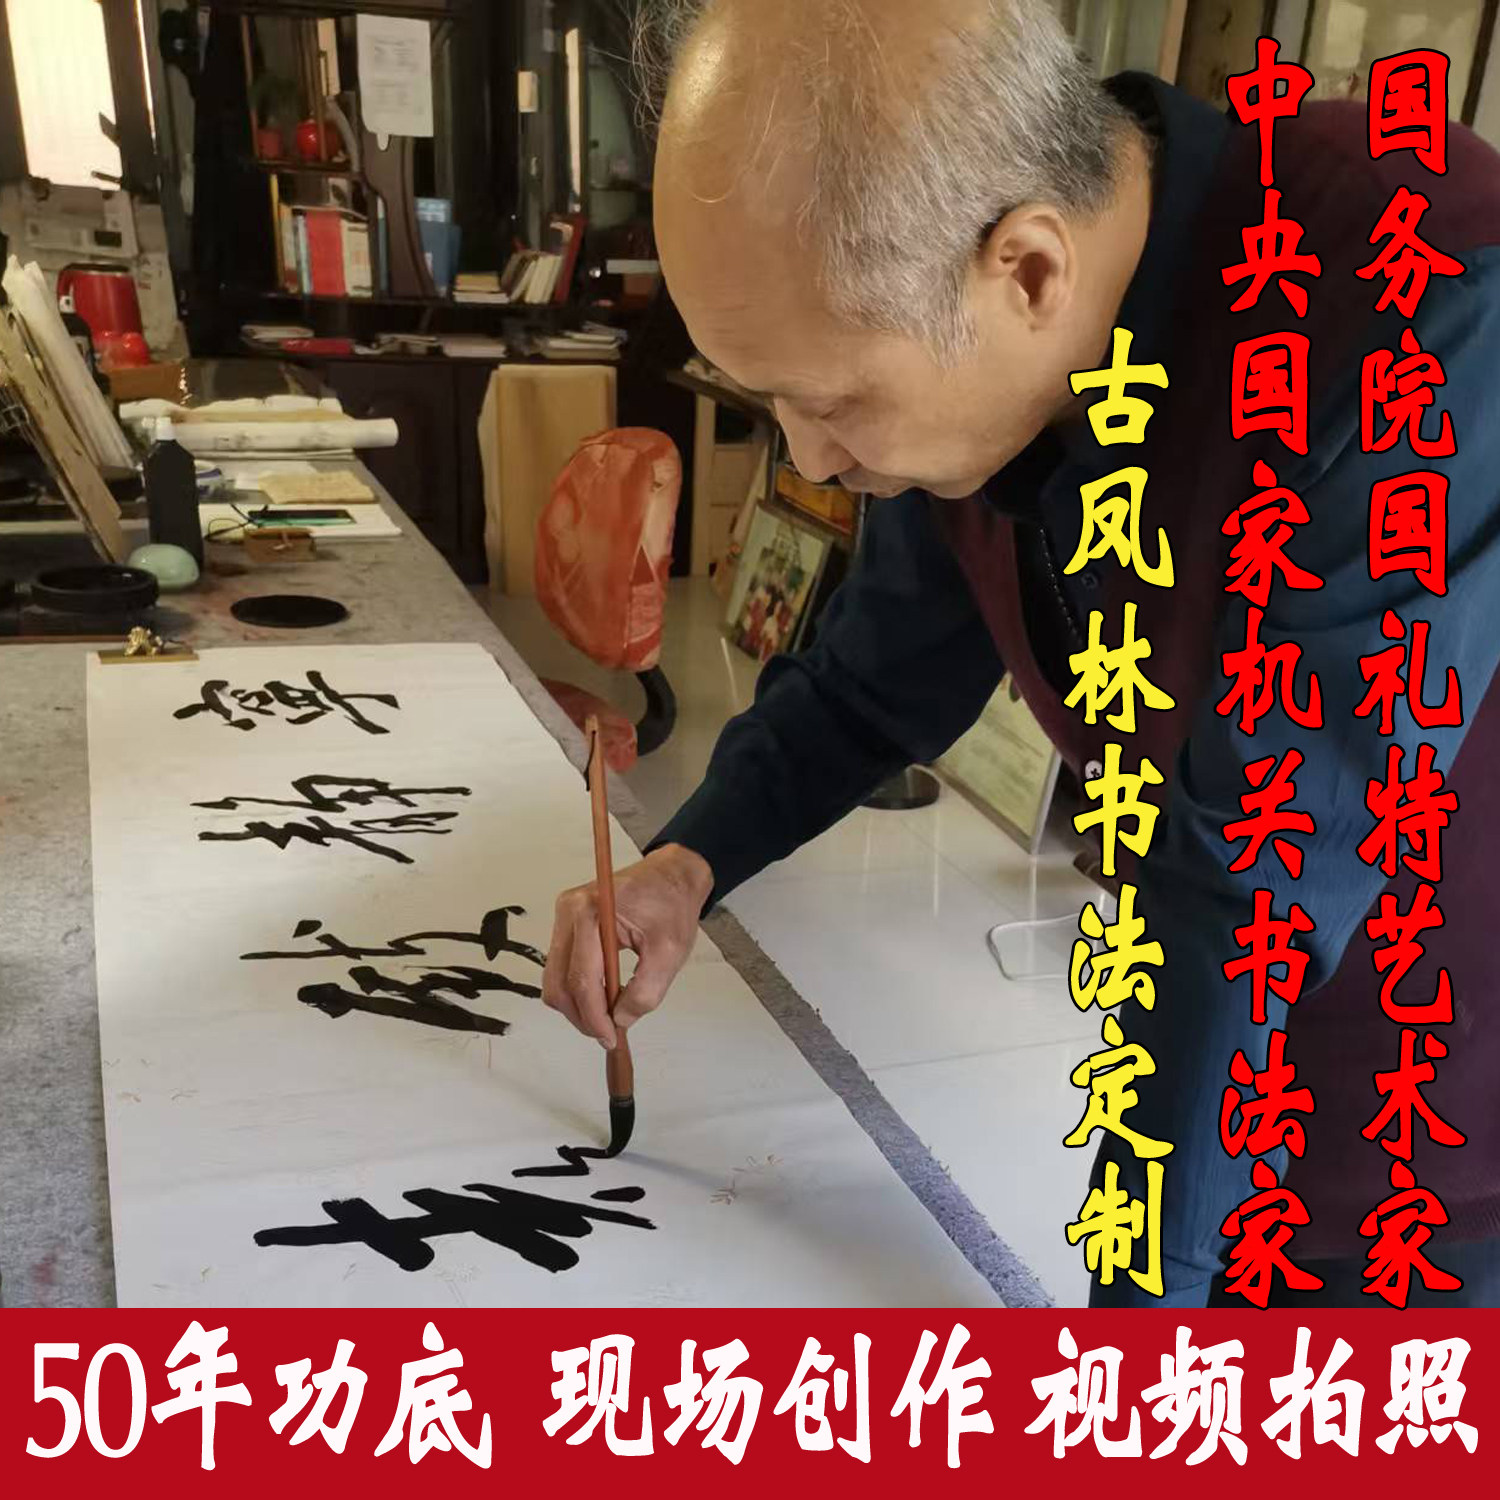 国务院国礼特艺术家
中央国家机关书法家
古凤林书法定制
50年功底 现场创作 视频拍照